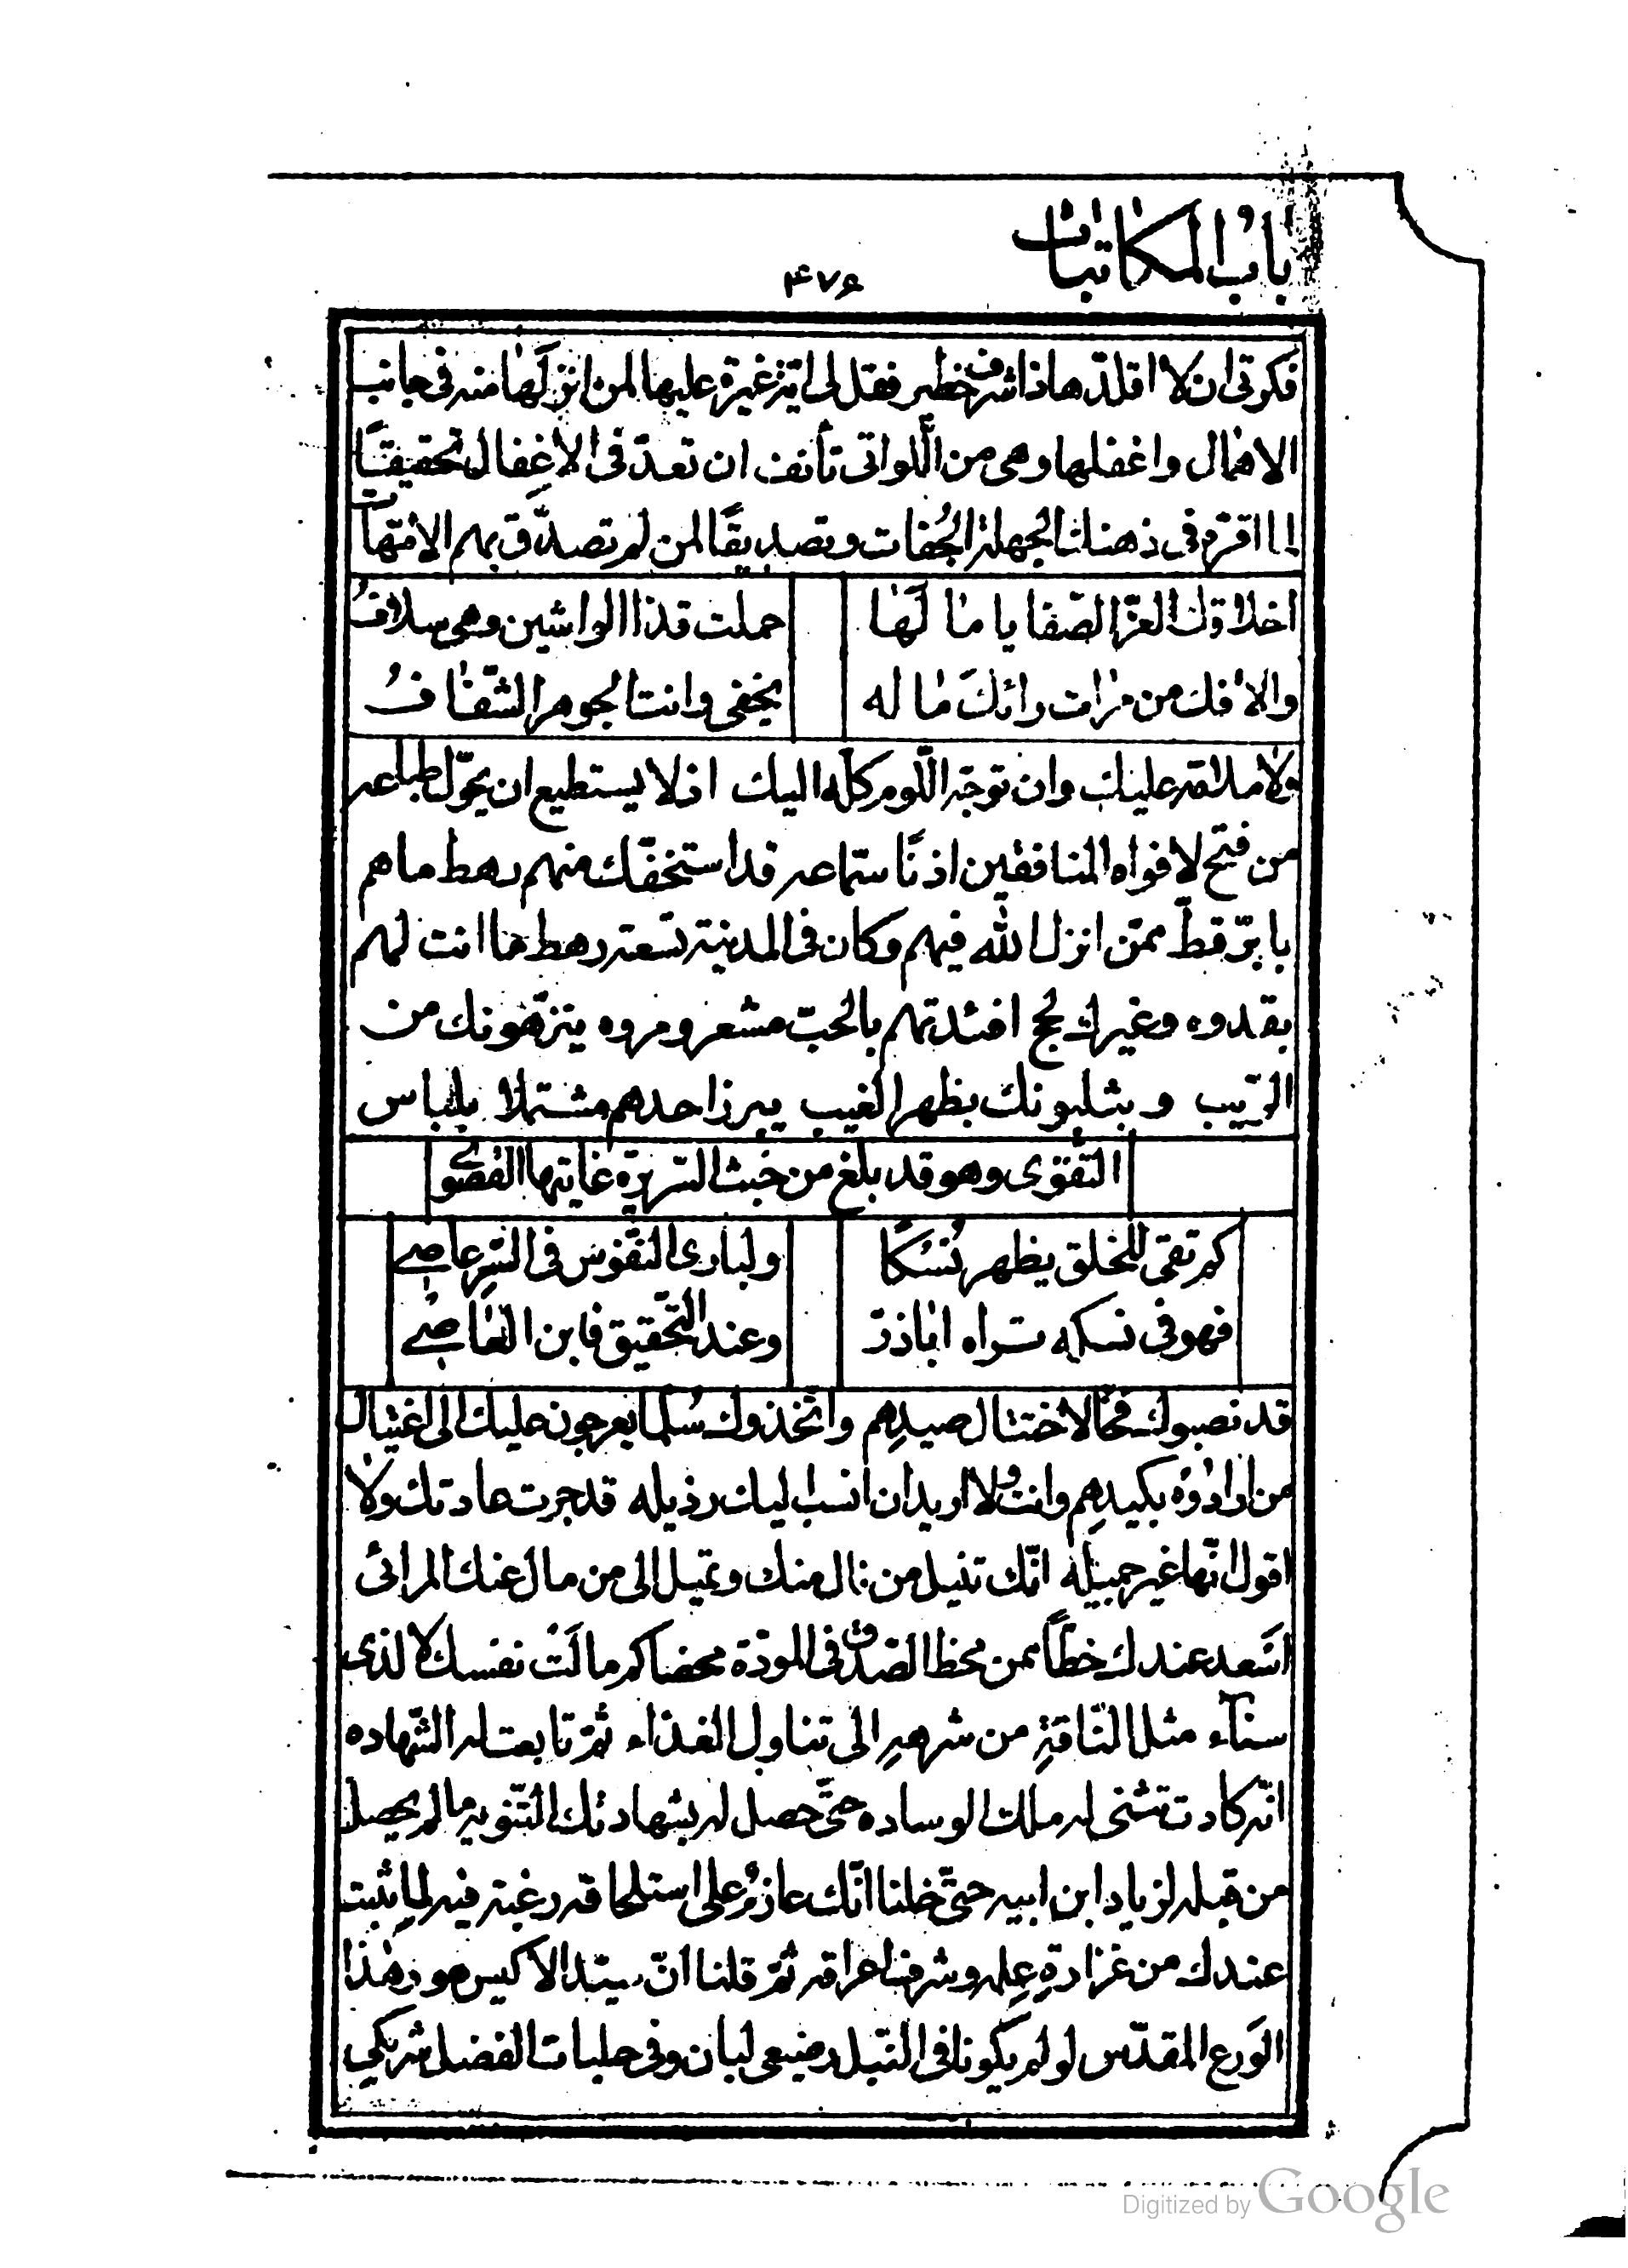 باب المكاتبات
۴۷۶
فكرتى ان لا اقلدها ذا شرف خطير فقل لى اية غيرة عليها لمن انزلها منه فى جانب
الاهمال واغفلها وهى من اللواتى تأنف ان تعدّ فى الاغفال تحقيقًا
لما اقرّه فى ذهنك الجهلة الجُفات وتصديقًا لمن لم تصدّق بهم الامّهات
اخلاقك الغرّ الصّفايا ما لَها
حملت قذا الواشين وهى سلافُ
والافك من مرات رائكَ ما له
يخفى وانت الجوهر الشّفّافُ
ولا ملامة عليك وان توجّه اللّوم كلّه اليك اذ لا يستطيع ان يحوّل طباعه
من فتح لافواه المنافقين اذنًا سمّاعه قد استخفّك منهم رهط ما هم
بابرّ قطّ ممّن انزل الله فيهم وكان فى المدينة تسعة رهط ما انت لهم
بقدوه وغيرك لحج افئدتهم بالحبّ مشعر ومروه ينزّهونك من
الرّيب و يثلبونك بظهر الغيب يبرز احدهم مشتملا بلباس
التّقوى وهو قد بلغ من خبث السّريرة غايتها القصوى
كم تقى للخلق يظهر نُسُكًا
ولبارى النّفوس فى السّرِ عاصى
فهو فى نسكه تراه اباذرّ
وعند التّحقيق فابن العاصى
قد نصبوك فخّا لاختتال صيدِهم واتّخذوك سُلّما يعرجون عليك الى اغتيال
من ارادوْهُ بكيدِهم وانت ولا اريد ان انسب اليك رذيله قد جرت عادتك ولا
اقول انّها غير جميله انّك تنيل من نال منك وتميل الى من مال عنك المرائى
اسَعد عندك حظّاً ممن محظ الصّدق فى المودّة محضا كم مالَتْ نفسك لا لذى
سنآء مثل النّاقةِ من شرهِهِ الى تناول الغذاء ثمّ تابعت له الشّهاده
انّه كادت تثنى له ملك الوساده حتّى حصل له بشهادتك التّنويه ما لم يحصل
من قبله لزياد ابن ابيه حتّى خلنا انّك عازمٌ على استلحاقه رغبة فيه لما ثبت
عندك من غزارةِ عِلمه وشرف اعراقه ثمّ قلنا انّ سيّد الاكيس هو وهٰذا
الوَرِع المقدّس لو لم يكونا فى النّبل رضيعى لبان وفى حلبات الفضل شريكى
Digitized by Google